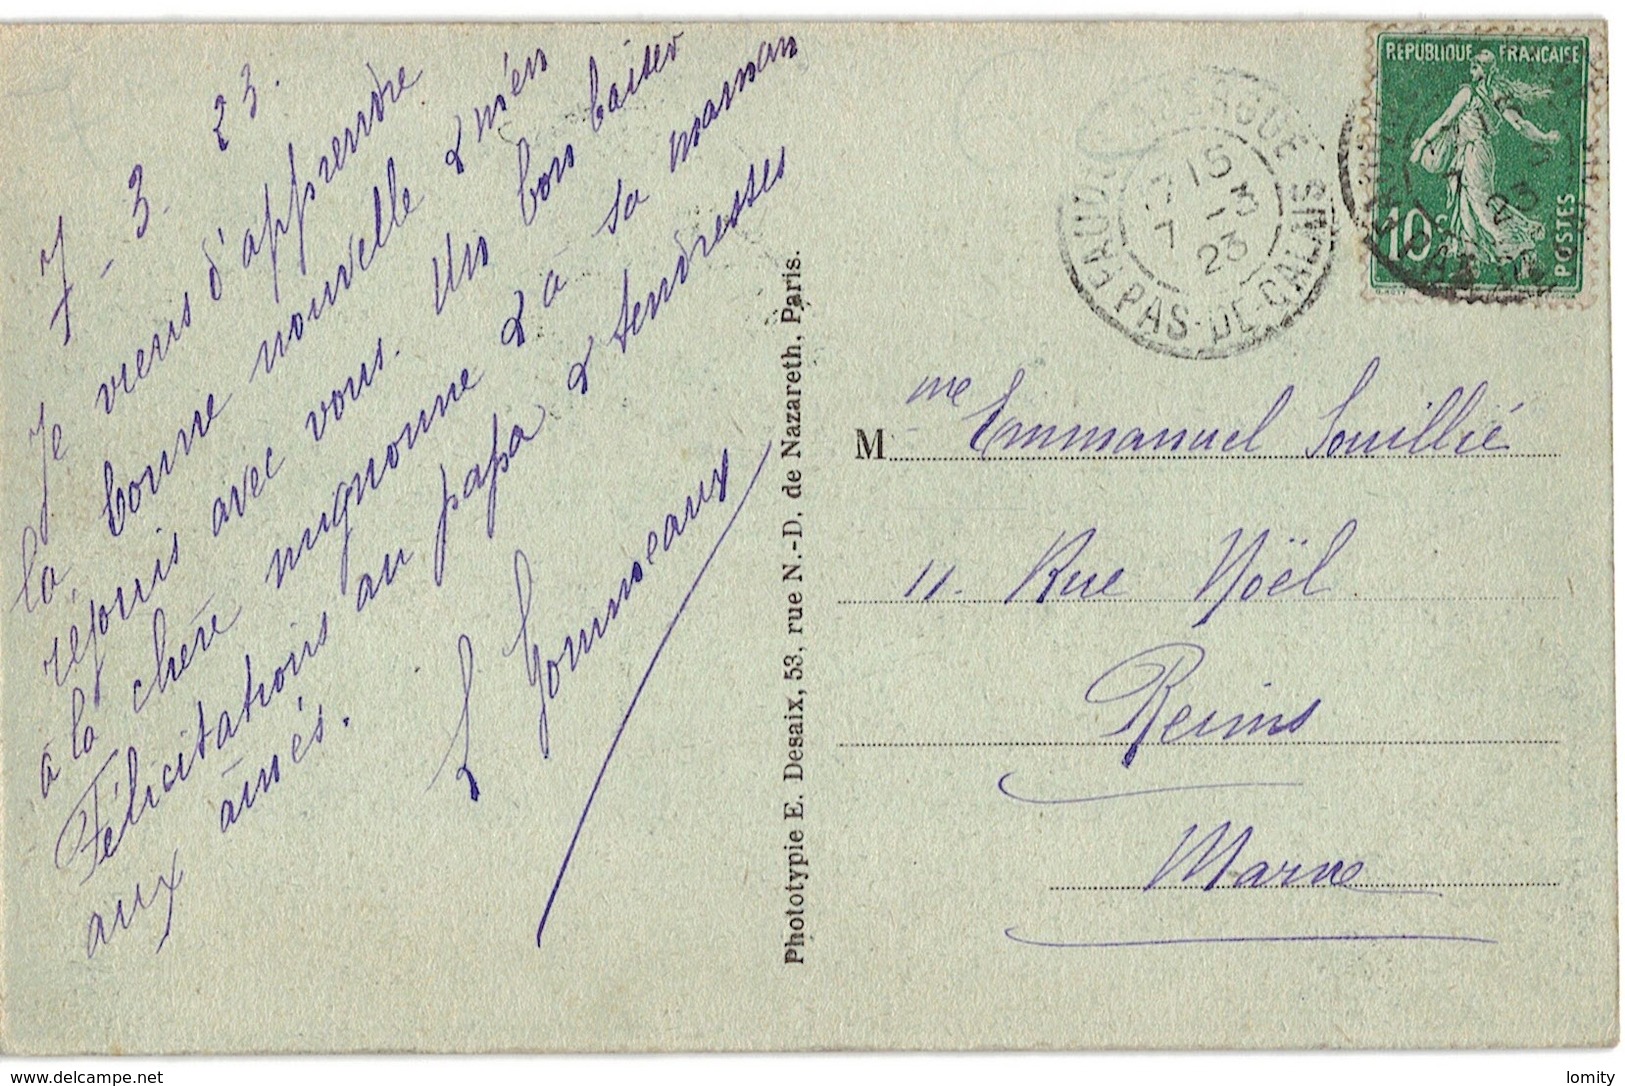 7-3-23.
Je viens d'apprendre
la bonne nouvelle & m'en
réjouis avec vous. Un bon baiser
à la chère mignonne & à sa maman
Félicitations au papa & tendresses
aux aînés.
Phototypie E. Desaix, 53, rue N.-D. de Nazareth, Paris.
REPUBLIQUE FRANÇAISE
10c
POSTES
PAS-DE-CALAIS
7 15
7 - 3
23
M me Emmanuel Souillié
11. Rue Noël
Reims
Marne
www.delcampe.net
lomity